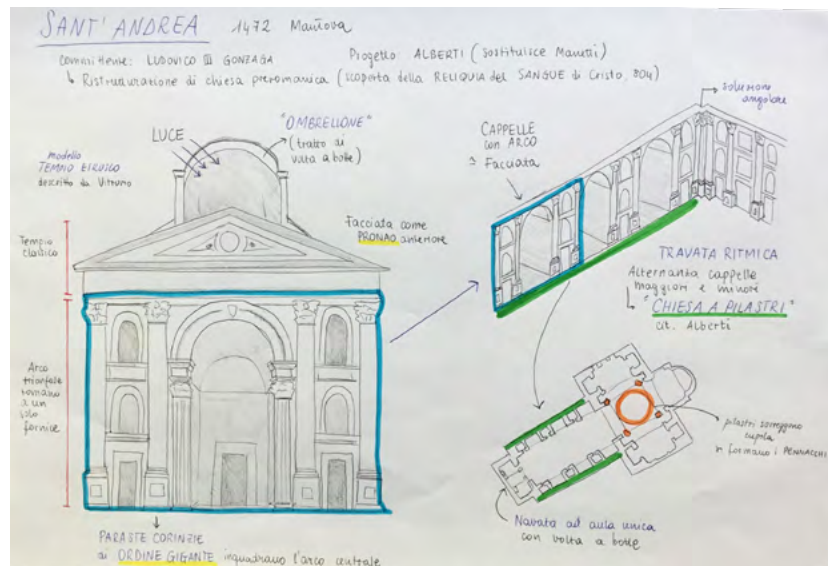 SANT' ANDREA 1472 Mantova
Committente: LUDOVICO III GONZAGA Progetto: ALBERTI (sostituisce Manetti)
↳ Ristrutturazione di chiesa preromanica (scoperta della RELIQUIA del SANGUE di Cristo, 804)
LUCE
"OMBRELLONE"
(tratto di
volta a botte)
modello
TEMPIO ETRUSCO
descritto da Vitruvio
Tempio
classico
Facciata come
PRONAO anteriore
Arco
trionfale
romano
a un
solo
fornice
PARASTE CORINZIE
di ORDINE GIGANTE inquadrano l'arco centrale
CAPPELLE
con ARCO
≃ Facciata
soluzione
angolare
TRAVATA RITMICA
Alternanza cappelle
maggiori e minori
↳ "CHIESA A PILASTRI"
cit. Alberti
pilastri sorreggono
cupola
formano i PENNACCHI
Navata ad aula unica
con volta a botte